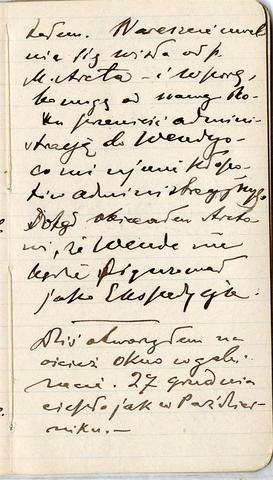 ładem. Nareszcie uwol
nia się wizła od p.
M. Arcta – i w porę,
bo mogę od nowego Ro-
ku przenieść admini-
strację do Wendego,
co mi ujmie kłopo-
tów administracyjnych.
Dotąd obiecałem Arcto-
wi, że Wende nie
będzie figurował
jako Ekspedycja.
Dziś otworzyłem na
oścież okno w gabi-
necie. 27 grudnia
ciepło jak w Paździer-
niku. –